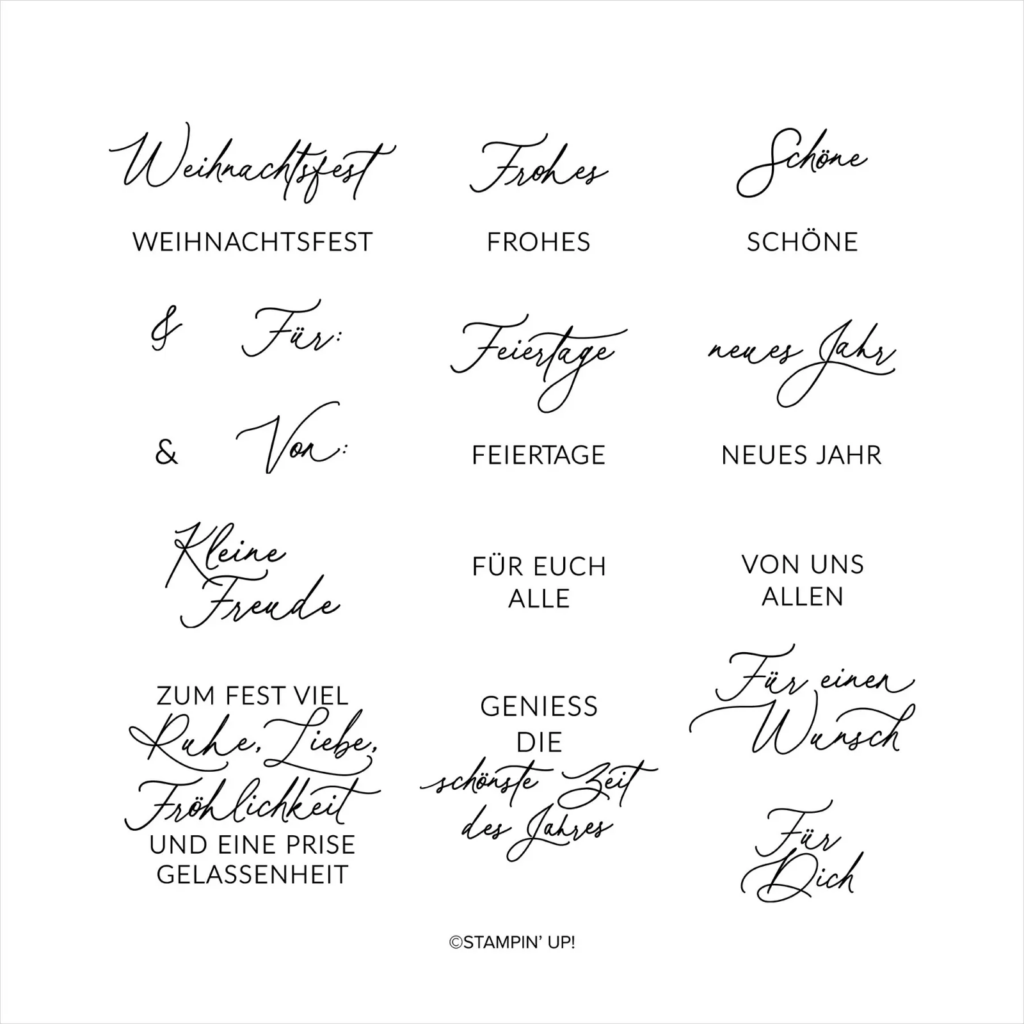 Weihnachtsfest
WEIHNACHTSFEST
Frohes
FROHES
Schöne
SCHÖNE
& Für:
& Von:
Feiertage
FEIERTAGE
neues Jahr
NEUES JAHR
Kleine
Freude
FÜR EUCH
ALLE
VON UNS
ALLEN
ZUM FEST VIEL
Ruhe, Liebe,
Fröhlichkeit
UND EINE PRISE
GELASSENHEIT
GENIESS
DIE
schönste Zeit
des Jahres
Für einen
Wunsch
Für
Dich
©STAMPIN' UP!